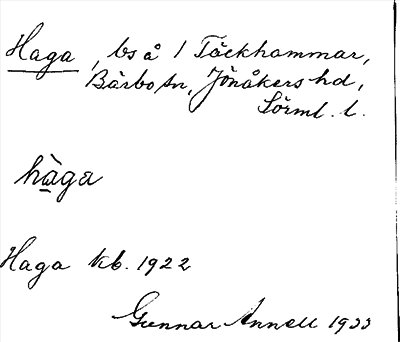 Haga, bs å 1 Täckhammar,
Bärbo sn, Jönåkers hd,
Sörml. l.
hàga
Haga kb. 1922
Gunnar Annell 1933